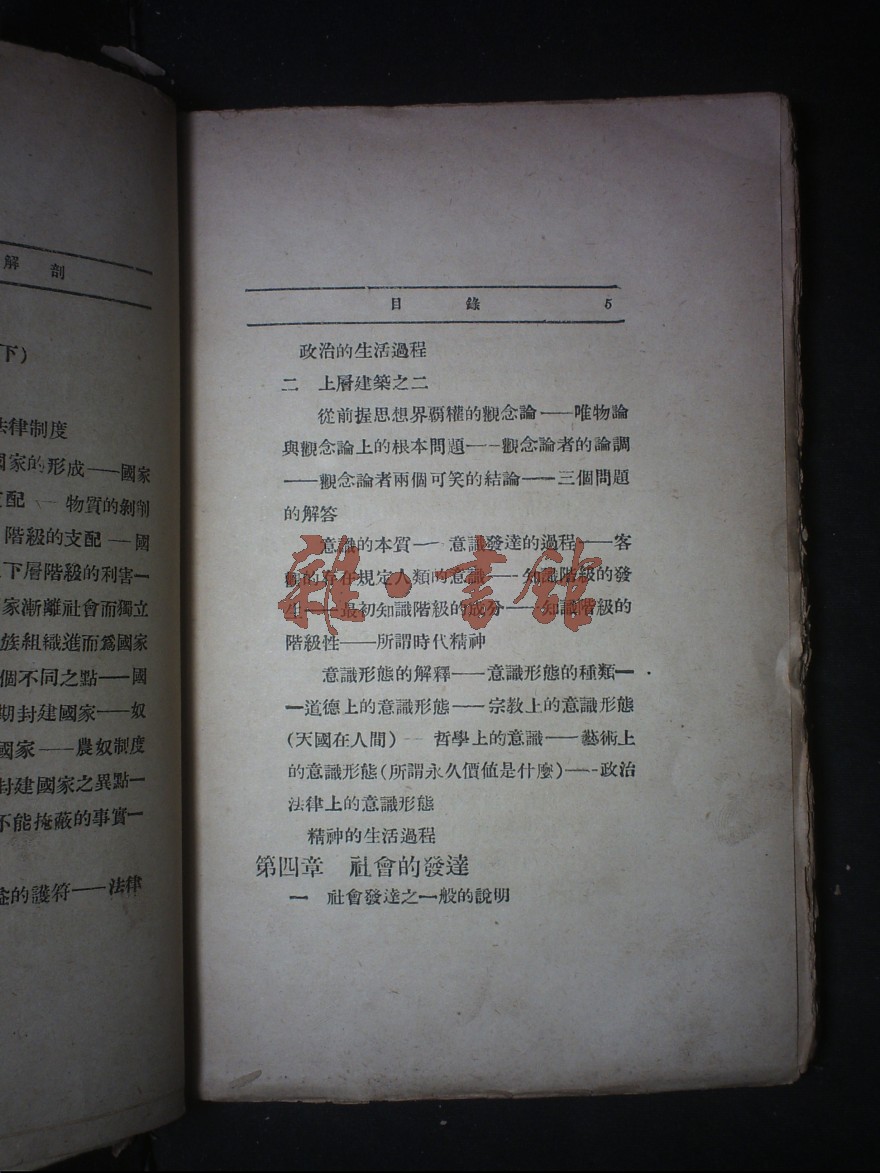 解剖
下）
法律制度
國家的形成——國家
支配——物質的剝削
階級的支配——國
下層階級的利害—
家漸離社會而獨立
族組織進而爲國家
個不同之點——國
期封建國家——奴
國家——農奴制度
封建國家之異點—
不能掩蔽的事實—
的護符——法律
目錄 5
政治的生活過程
二 上層建築之二
從前握思想界霸權的觀念論——唯物論
與觀念論上的根本問題——觀念論者的論調
——觀念論者兩個可笑的結論——三個問題
的解答
意識的本質——意識發達的過程——客
觀的存在規定人類的意識——知識階級的發
生——最初知識階級的成分——知識階級的
階級性——所謂時代精神
意識形態的解釋——意識形態的種類—
—道德上的意識形態——宗教上的意識形態
(天國在人間)——哲學上的意識——藝術上
的意識形態(所謂永久價値是什麼)——政治
法律上的意識形態
精神的生活過程
第四章 社會的發達
一 社會發達之一般的說明
雜·書館